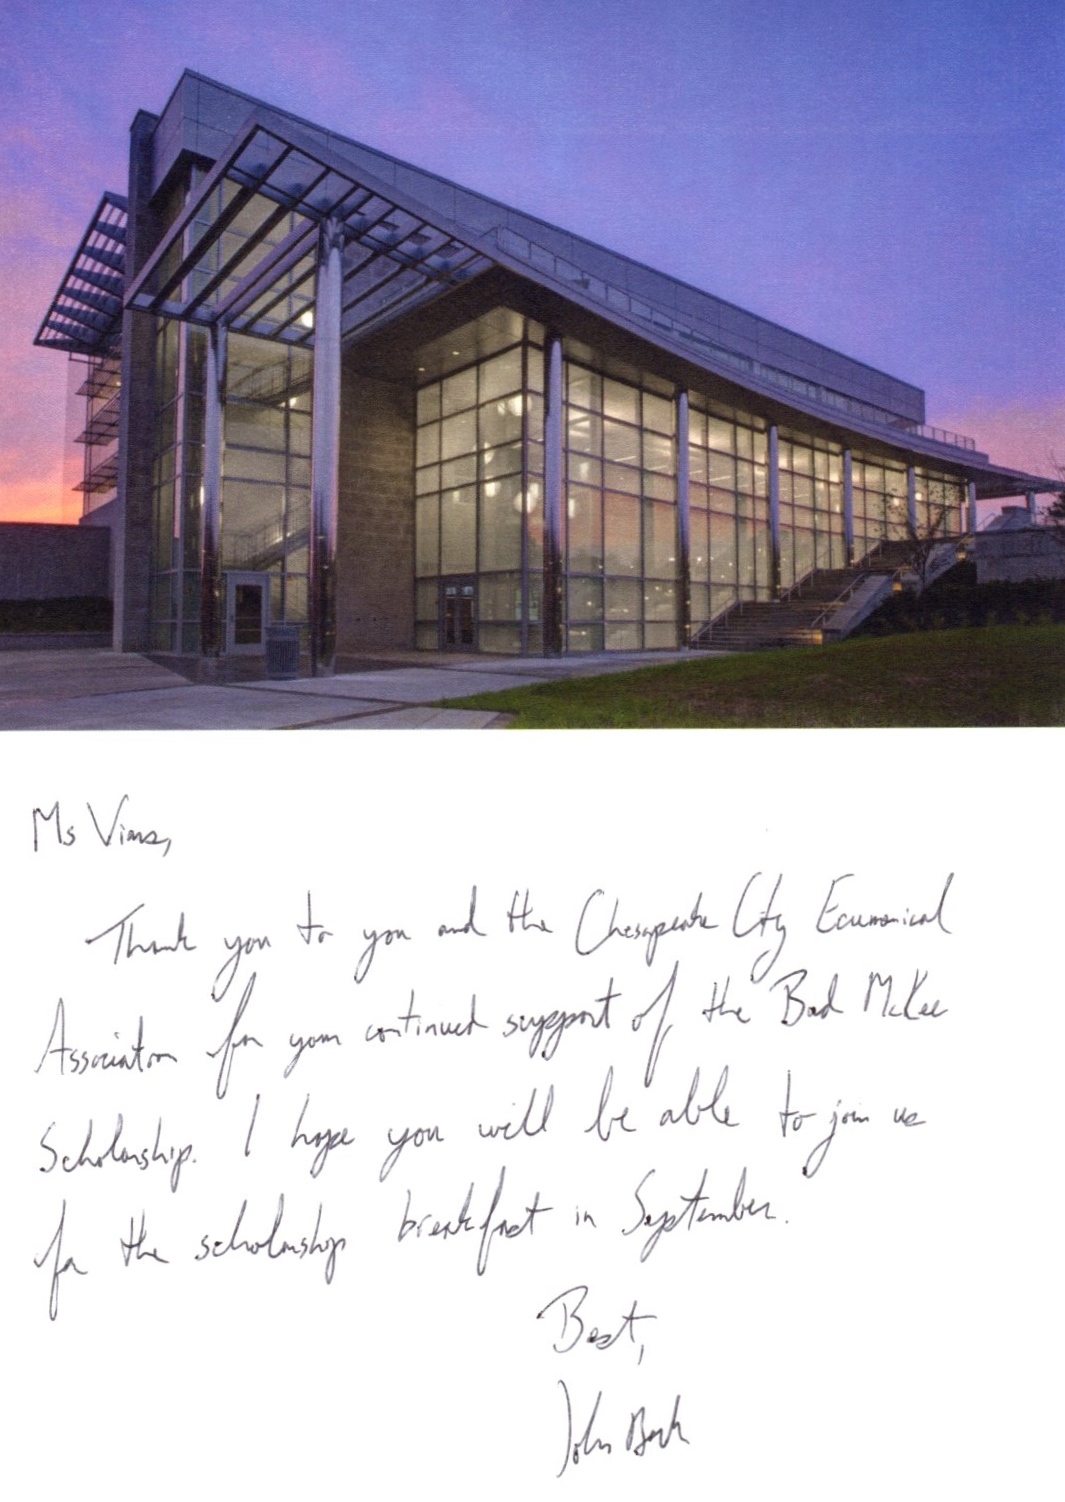 Ms
Thank you to you and the Chesapeake City Ecumenical
Association for your continued support of the McKee
Scholarship. I hope you will be able to join us
for the scholarship breakfast in September.
Best,
John